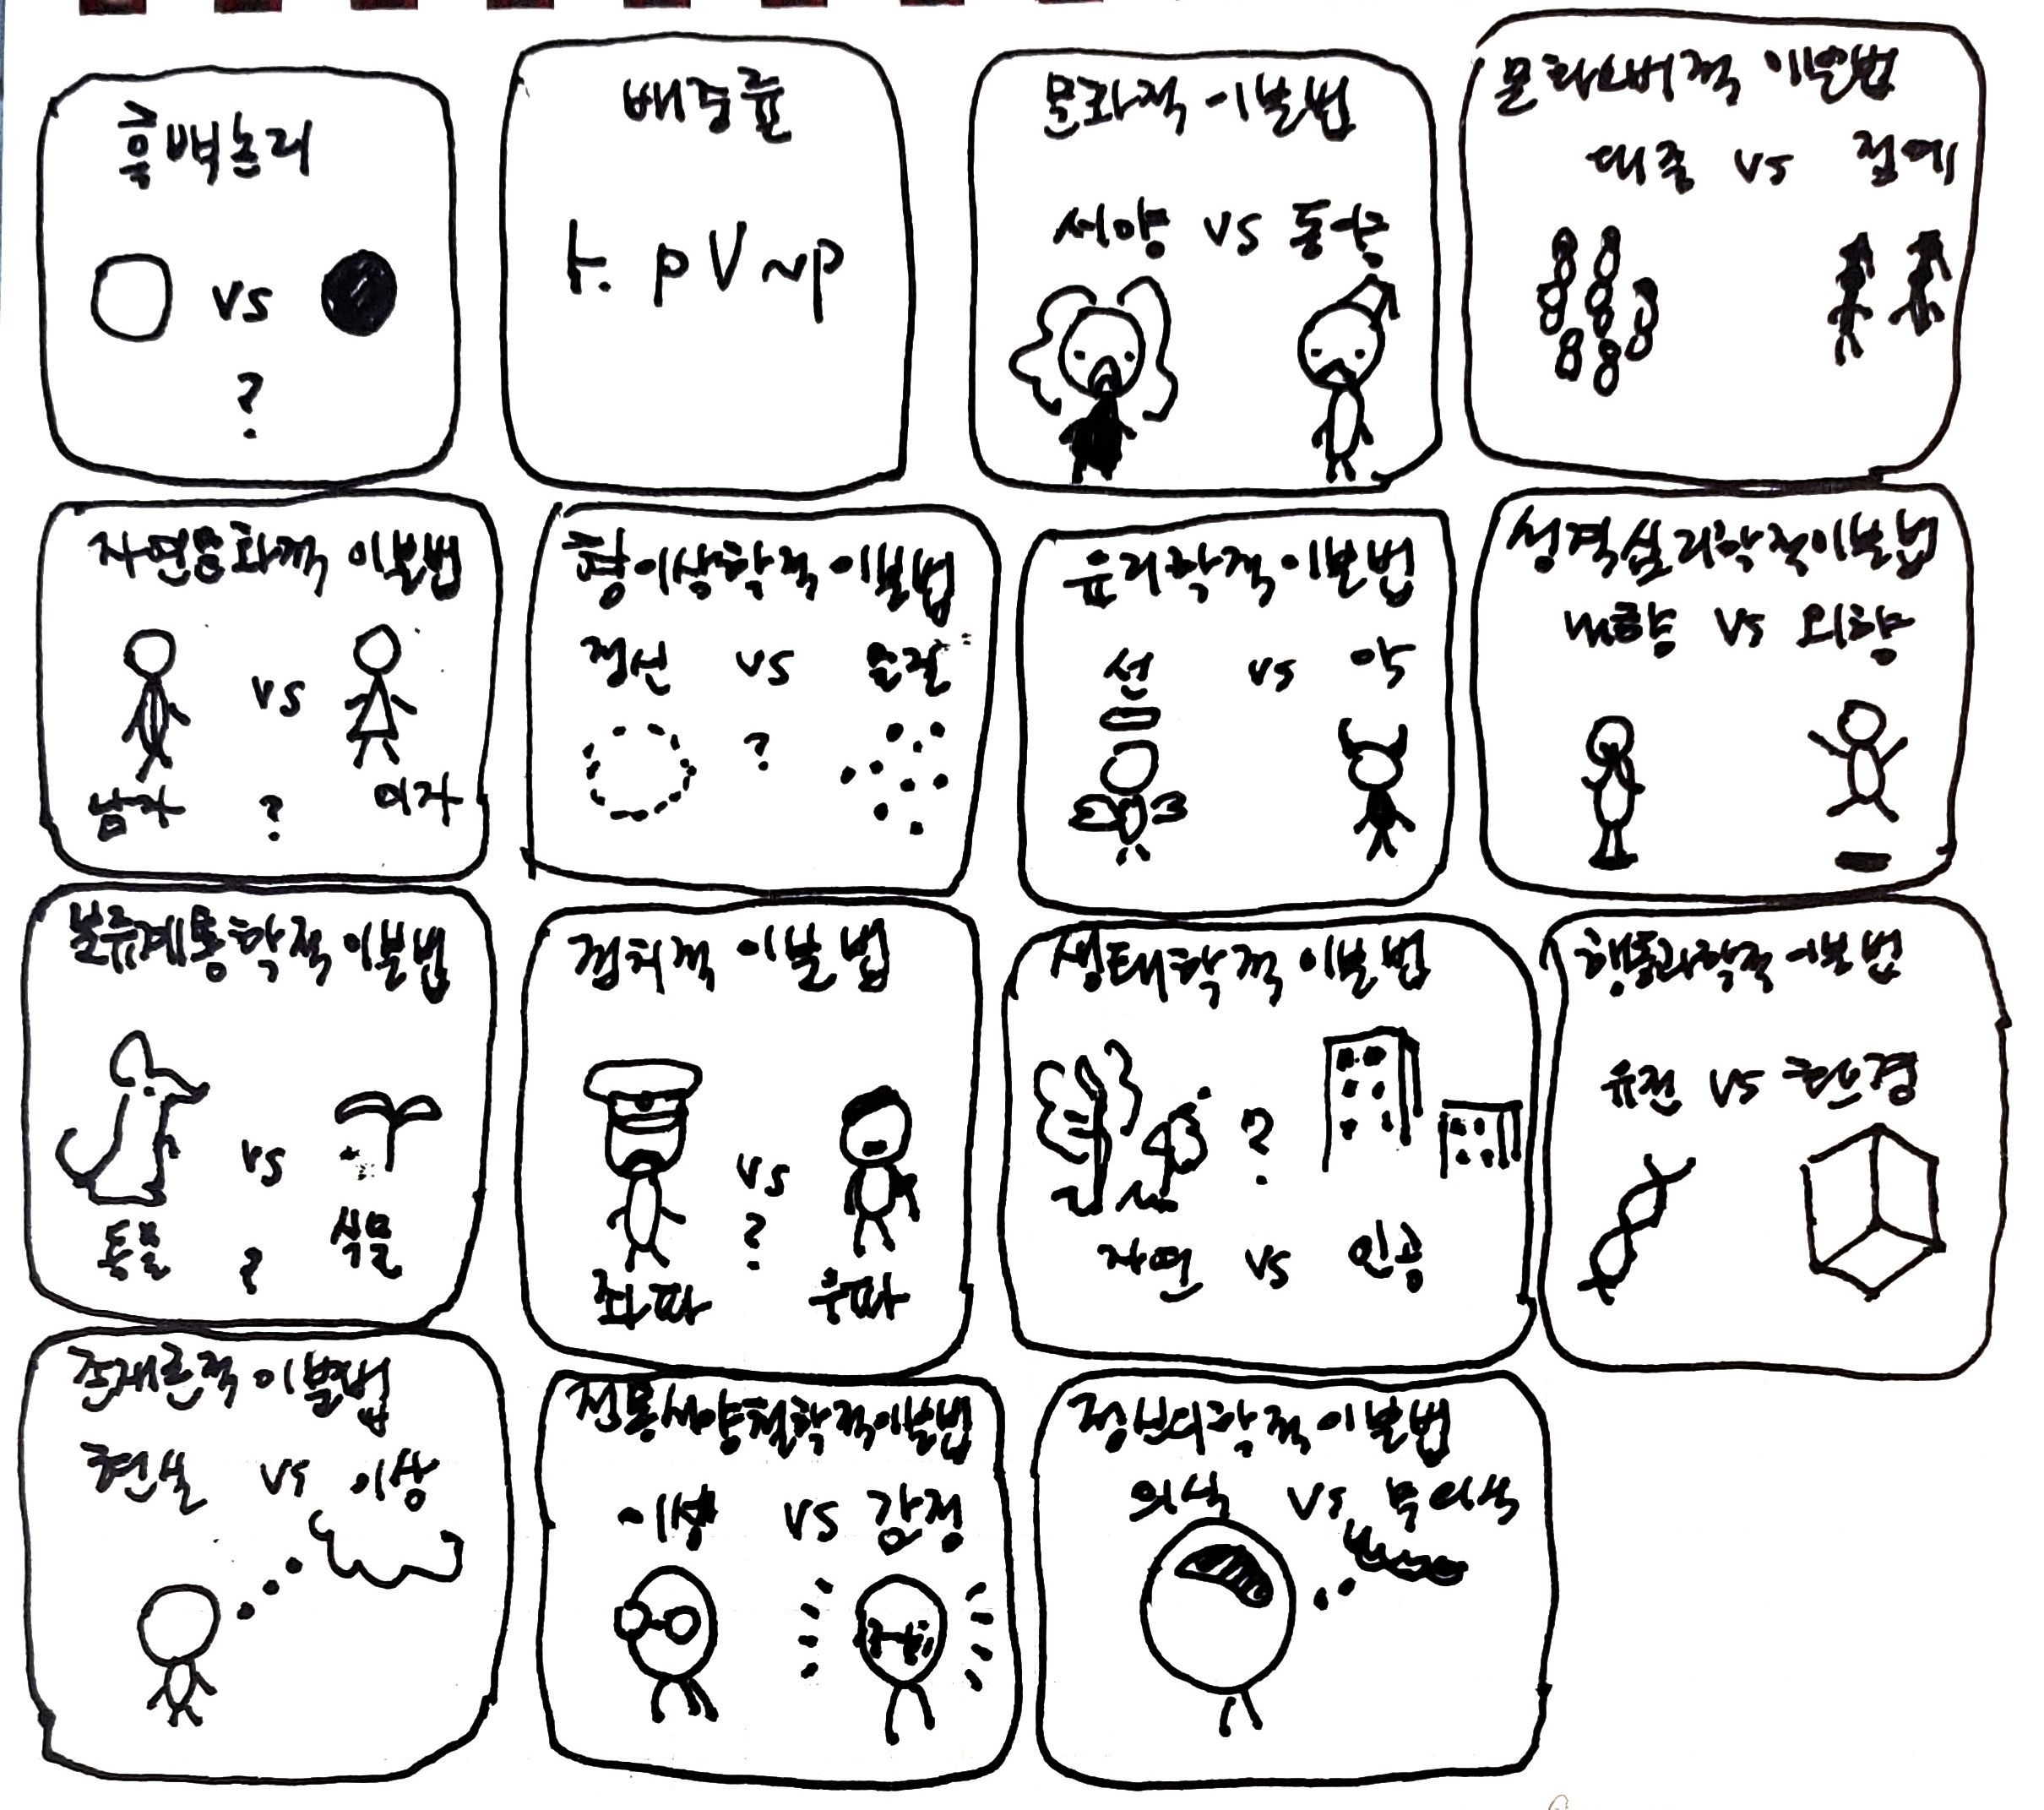 흑백논리
vs
?
배중률
⊢. p V ~p
문화적 이분법
서양 vs 동양
문화산업적 이분법
대중 vs 정예
자연문화적 이분법
vs
남자 ? 여자
형이상학적 이분법
정신 vs 물질
?
윤리학적 이분법
선 vs 악
성격심리학적 이분법
내향 vs 외향
분류계통학적 이분법
vs
동물 ? 식물
정치적 이분법
vs
?
좌파 우파
생태학적 이분법
?
자연 vs 인공
행동과학적 이분법
유전 vs 환경
존재론적 이분법
현실 vs 이상
전통서양철학적 이분법
이성 vs 감정
정신의학적 이분법
의식 vs 무의식